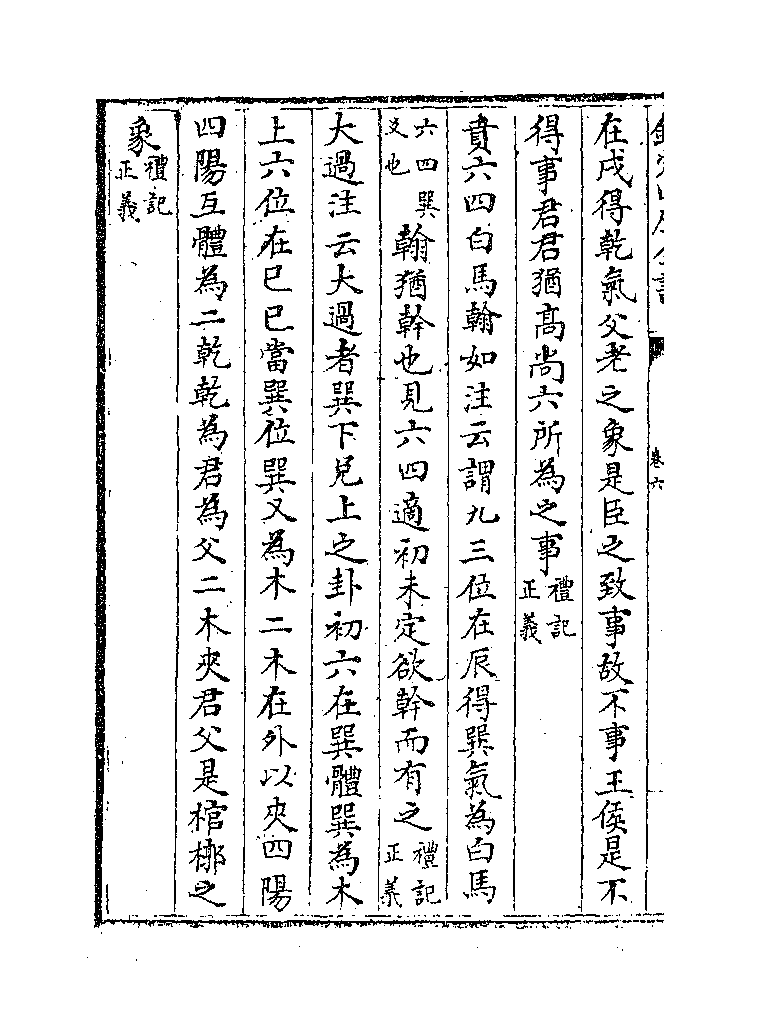 卷六
在戌得乾氣父老之象是臣之致事故不事王侯是不
得事君君猶高尚六所為之事禮記正義
賁六四白馬翰如注云謂九三位在辰得巽氣為白馬
六四巽爻也翰猶幹也見六四適初未定欲幹而有之禮記正義
大過注云大過者巽下兌上之卦初六在巽體巽為木
上六位在巳巳當巽位巽又為木二木在外以夾四陽
四陽互體為二乾乾為君為父二木夾君父是棺槨之
象禮記正義